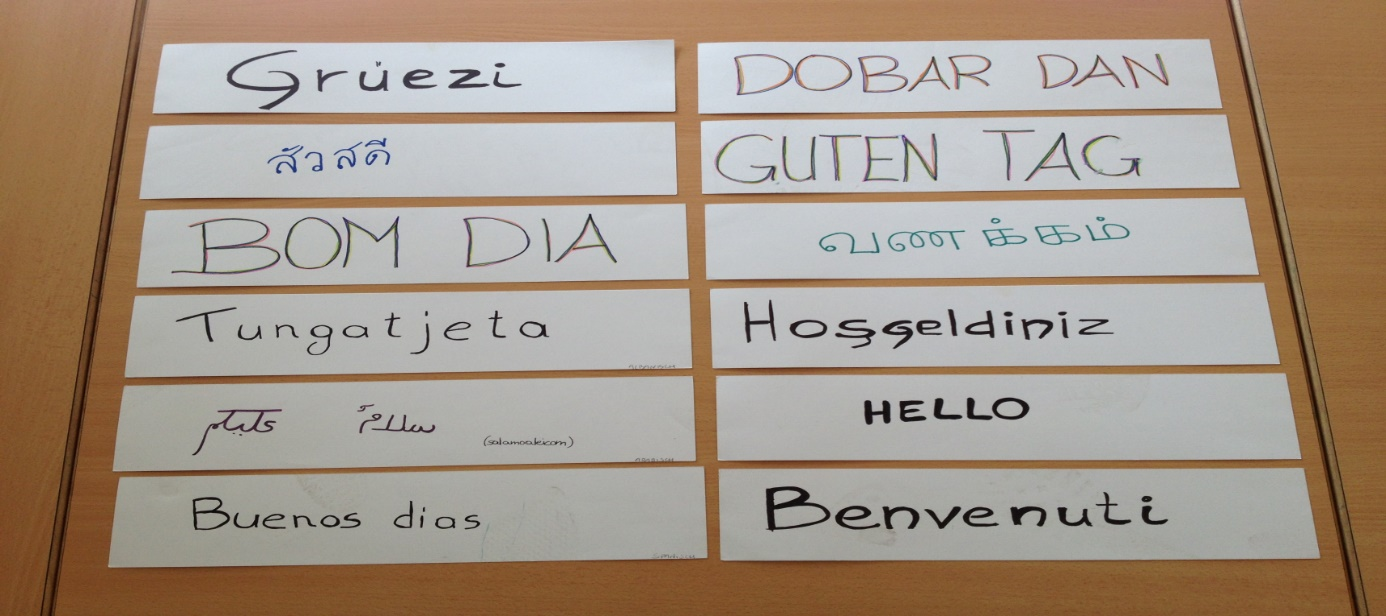 Grüezi
สัวสดี
BOM DIA
Tungatjeta
سلامٌ علیکم (salamoaleicom)
Buenos dias
DOBAR DAN
GUTEN TAG
வணக்கம்
Hoşgeldiniz
HELLO
Benvenuti